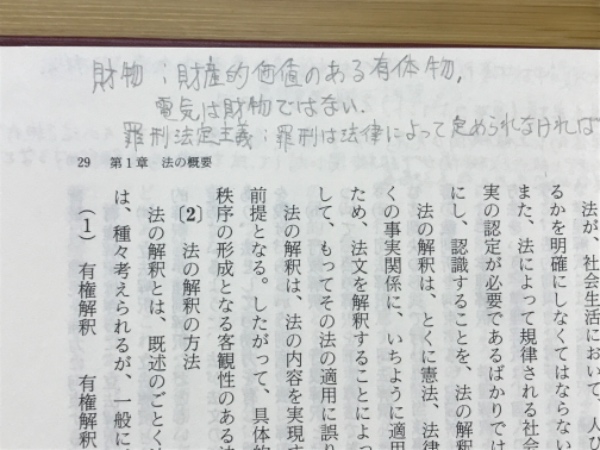 財物:財産的価値のある有体物,
電気は財物ではない.
罪刑法定主義:罪刑は法律によって定められなければ
29 第1章 法の概要
法が、社会生活において、人び
るかを明確にしなくてはならない
また、法によって規律される社会
実の認定が必要であるばかりでは
にし、認識することを、法の解釈
法の解釈は、とくに憲法、法律
くの事実関係に、いちように適用
ため、法文を解釈することによっ
して、もってその法の適用に誤り
法の解釈は、法の内容を実現す
前提となる。したがって、具体的
秩序の形成となる客観性のある法
〔2〕 法の解釈の方法
法の解釈とは、既述のごとく法
は、種々考えられるが、一般に
(1) 有権解釈 有権解釈